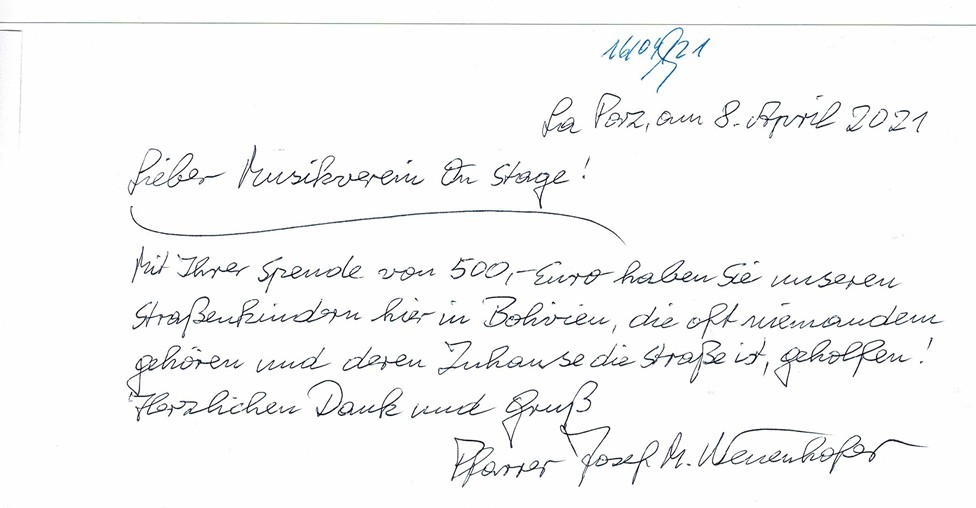 16/04/21
La Paz, am 8. April 2021
Lieber Musikverein On Stage!
Mit Ihrer Spende von 500,- Euro haben Sie unseren
Straßenkindern hier in Bolivien, die oft niemandem
gehören und deren Zuhause die Straße ist, geholfen!
Herzlichen Dank und Gruß
Pfarrer Josef M. Neuenhofer